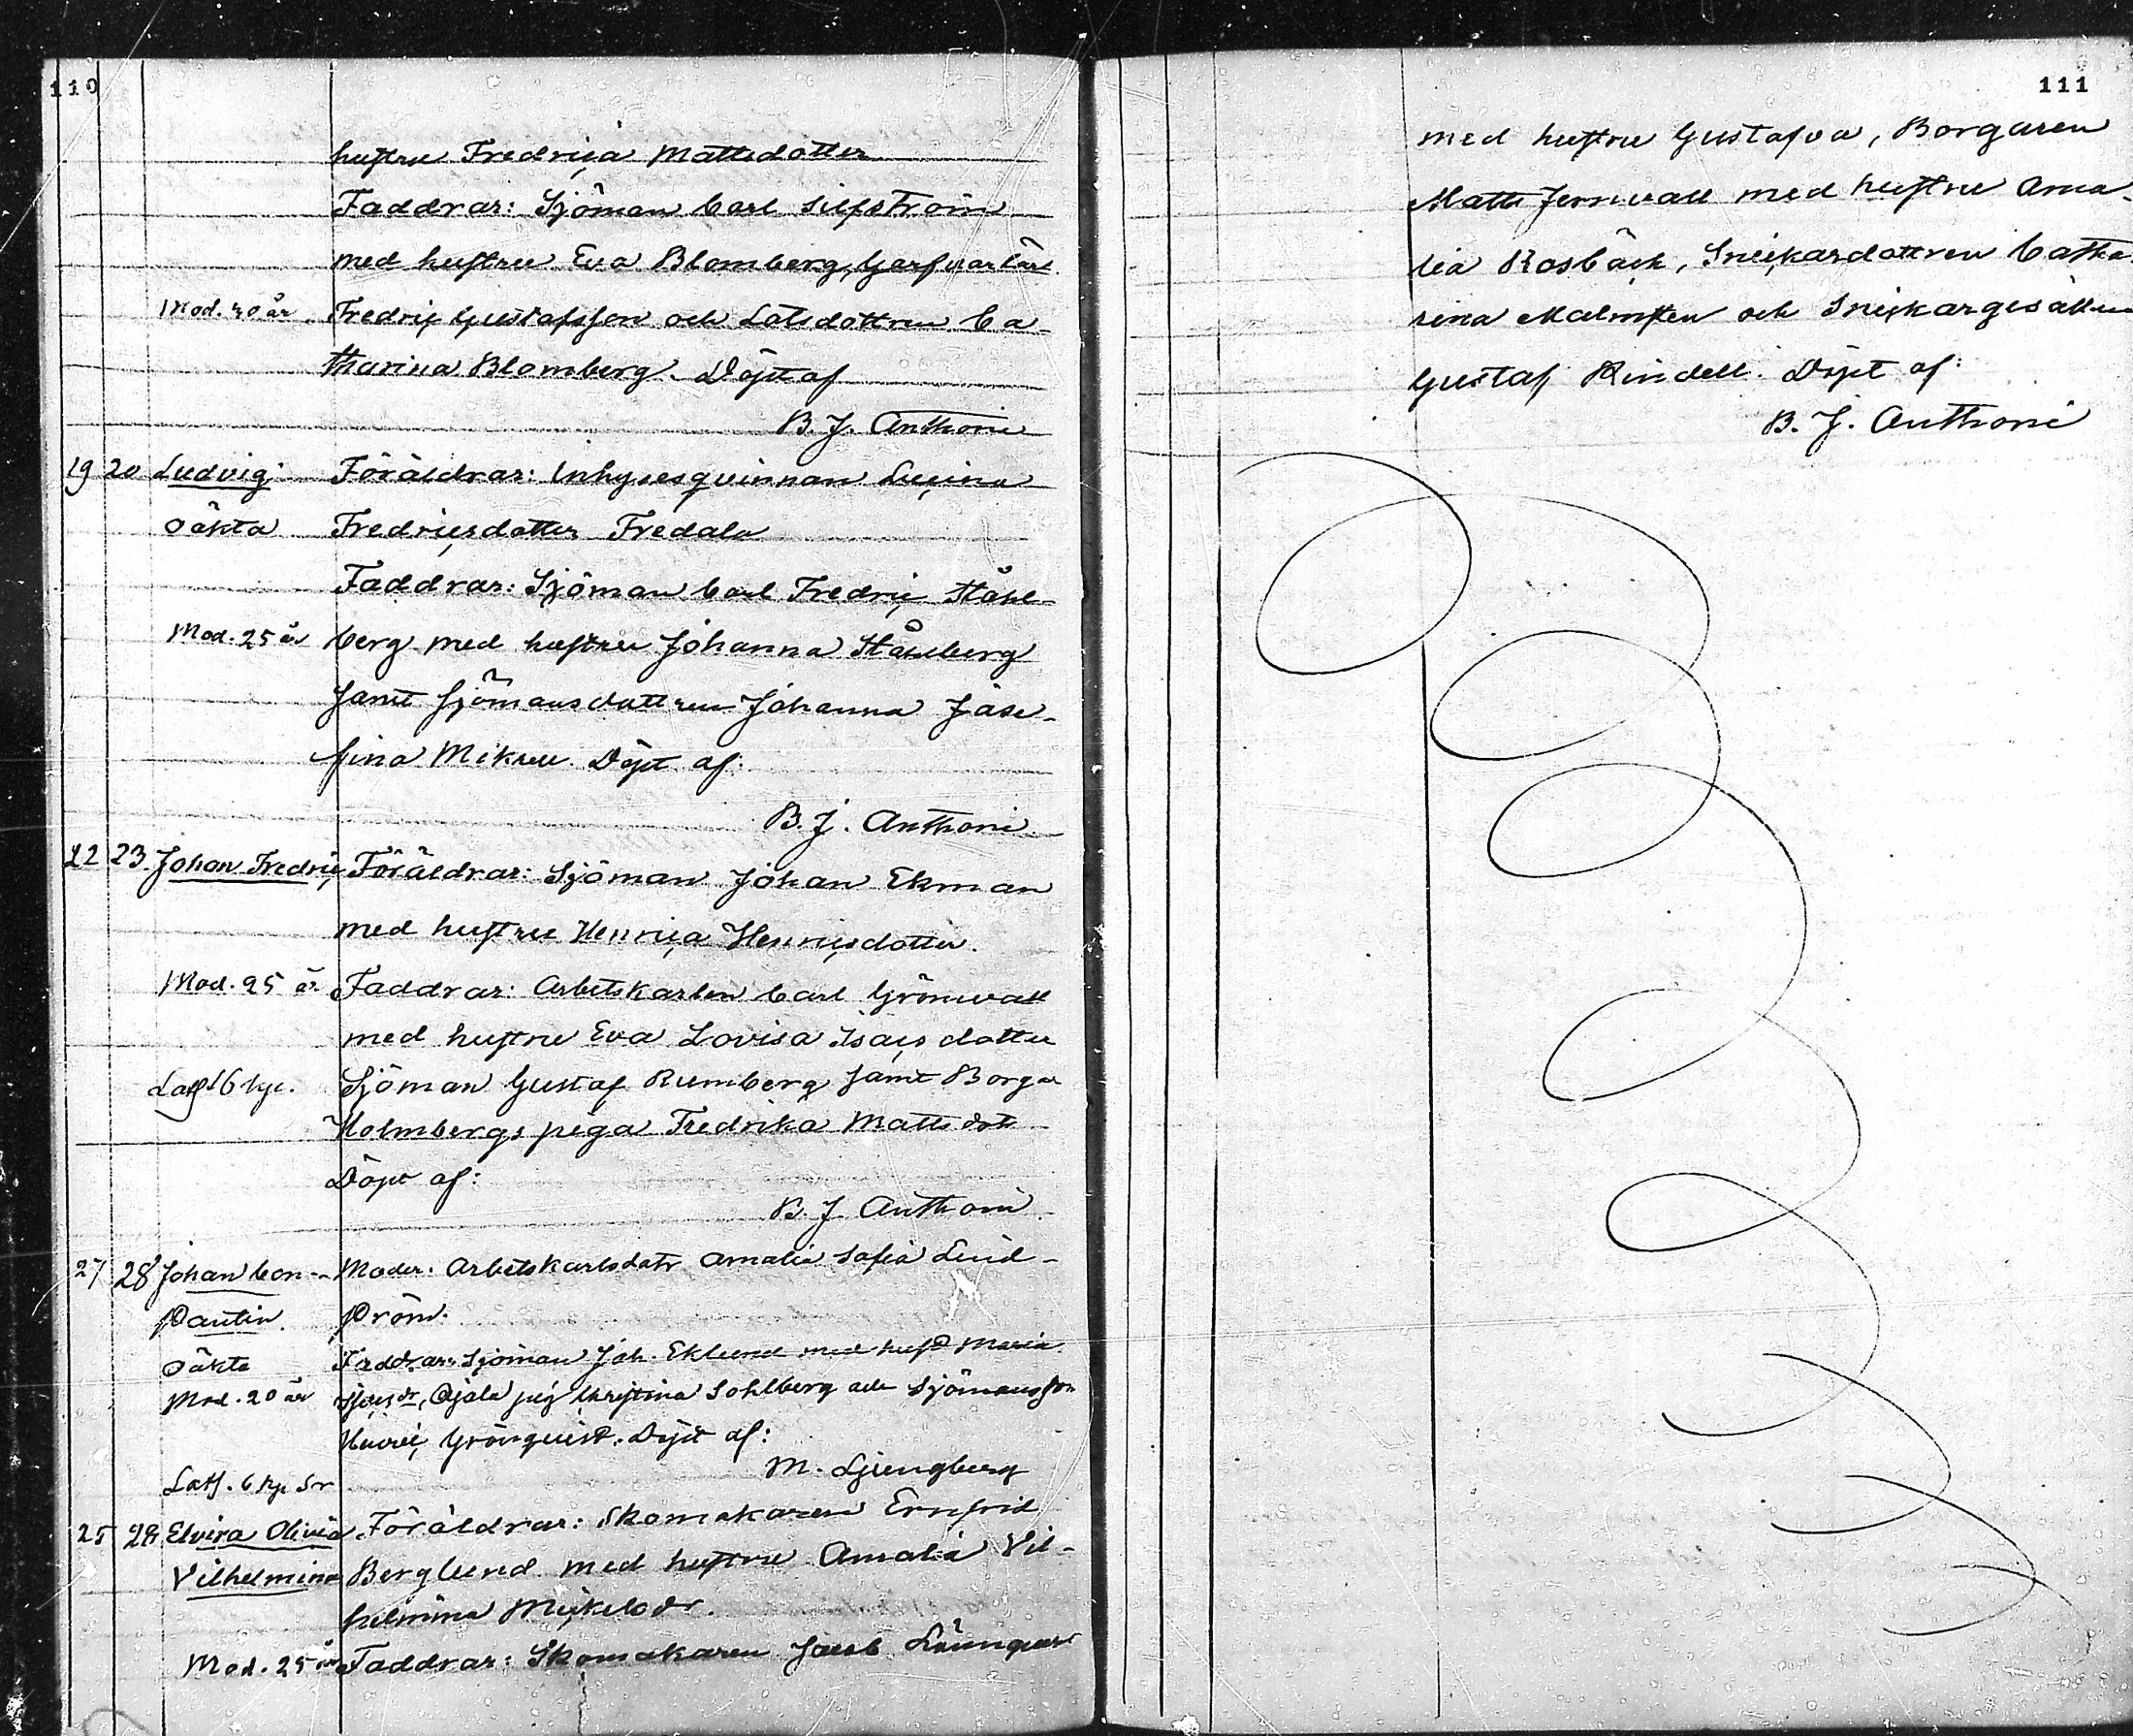 110
hustru Fredrica Mattsdotter
Faddrar: Sjöman Carl Silfström
med hustru Eva Blomberg, Garfvarlärl.
Mod. 40 år Fredric Gustafsson och Lotsdottren Ca-
tharina Blomberg. Döpt af
B. J. Anthoni
19 20 Ludvig Föräldrar: Inhysesqvinnan Lucina
oäkta Fredricsdotter Fredala
Faddrar: Sjöman Carl Fredric Ståhl-
Mod. 25 år berg med hustru Johanna Ståhlberg
samt Sjömansdottren Johanna Jose-
fina Mikren. Döpt af:
B. J. Anthoni
22 23 Johan Fredric Föräldrar: Sjöman Johan Ekman
med hustru Henrica Henricsdotter.
Mod. 25 år Faddrar: Arbetskarlen Carl Grönvall
med hustru Eva Lovisa Isacsdotter
6 kp. Sjöman Gustaf Rumberg samt Borga
Holmbergs piga Fredrika Mattsdotr
Döpt af:
B. J. Anthoni
27 28 Johan Con- Moder: Arbetskarlsdotr Amalia Sofia Lind-
stantin ström.
oäkta Faddrar: Sjöman Joh. Eklund med hust Maria
Mod. 20 år pig Christina Sohlberg och Sjömansson
Henric Grönqvist. Döpt af:
M. Ljungberg
6 kp
25 28 Elvira Olivia Föräldrar: Skomakaren Ernfrid
Vilhelmina Berglund med hustru Amalia Vil-
helmina Mickelsdr.
Mod. 25 år Faddrar: Skomakaren Jacob Lönnqvist
111
med hustru Gustafva, Borgaren
Matts Jernvall med hustru Ama-
lia Rosbäck, Snickardottren Catha-
rina Malmsten och Snickargesällen
Gustaf Rindell. Döpt af:
B. J. Anthoni